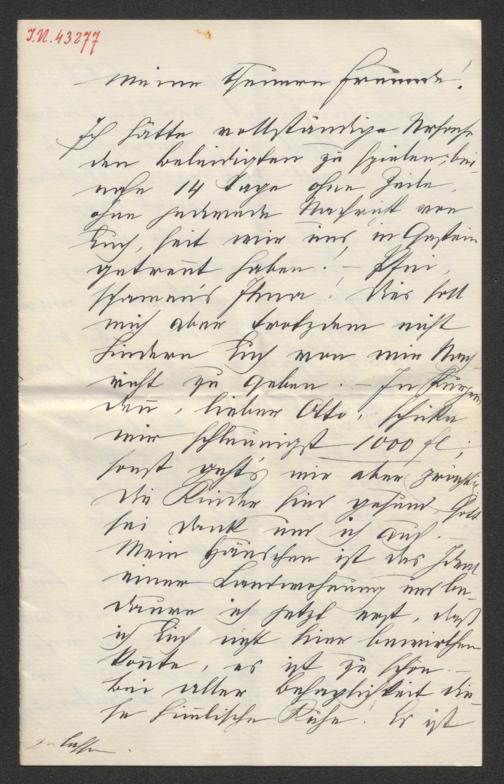 J.N. 43277
Meine theuern Freunde!
Ich hätte vollständige Ursache
den Beleidigten zu spielen; bei-
nahe 14 Tage ohne Zeile,
ohne jedwede Nachricht von
Euch, seit wir uns in Gastein
getrennt haben! – Pfui,
schamen's Ihna! Dies soll
mich aber trotzdem nicht
hindern Euch von mir Nach-
richt zu geben. – In Kürze
denn, lieber Otto, schicke
mir schleunigst 1000 fl;
sonst geht's mir aber prächtig
die Kinder sind gesund, Gott
sei dank und ich auch.
Mein Häuschen ist das Ideal
einer Landwohnung und be-
daure ich jetzt erst, daß
ich Euch nicht hier bewirthen
konnte, es ist zu schön –
bei aller Behaglichkeit die-
se himlische Ruhe! Es ist